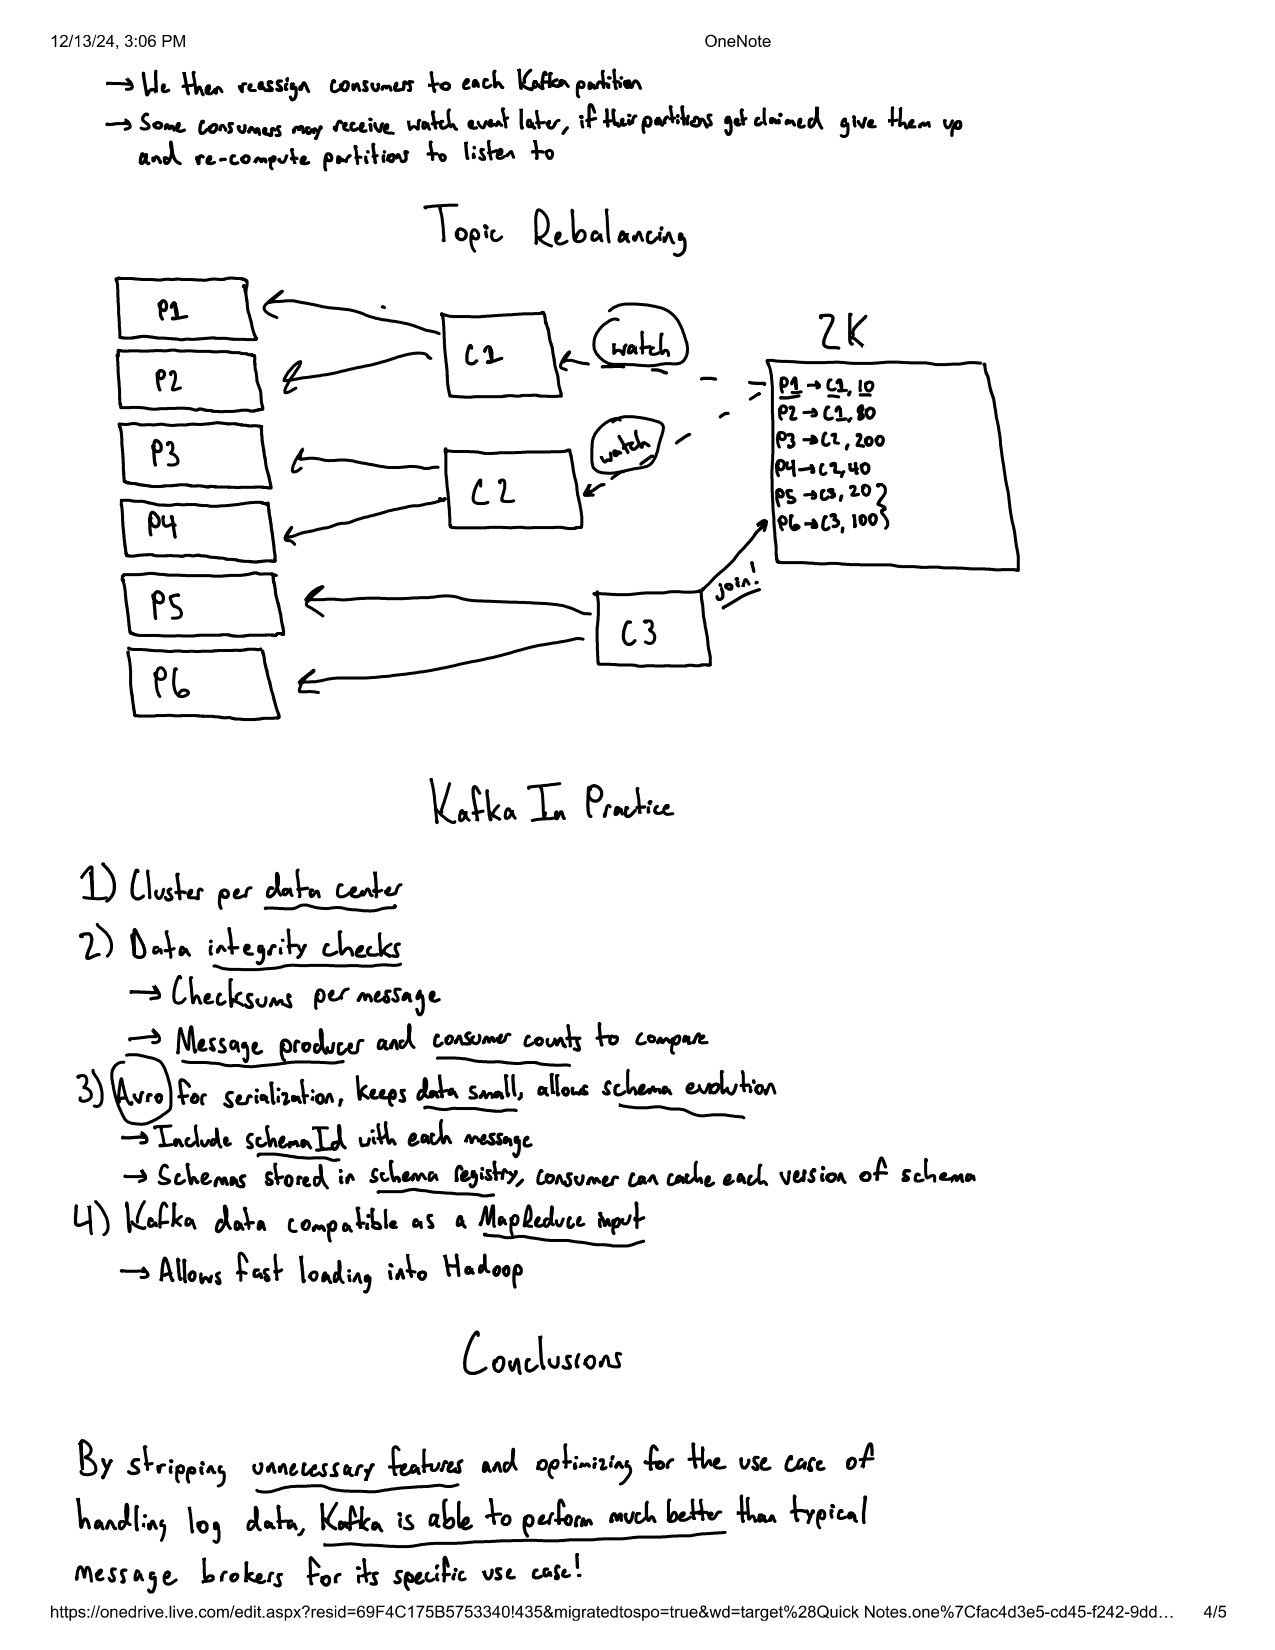 12/13/24, 3:06 PM OneNote
→ We then reassign consumers to each Kafka partition
→ Some consumers may receive watch event later, if their partitions get claimed give them up
and re-compute partitions to listen to
Topic Rebalancing
P1
P2
P3
P4
P5
P6
C1
C2
C3
watch
watch
join!
ZK
P1 → C1, 10
P2 → C1, 80
P3 → C2, 200
P4 → C2, 40
P5 → C3, 20
P6 → C3, 100
Kafka In Practice
1) Cluster per data center
2) Data integrity checks
→ Checksums per message
→ Message producer and consumer counts to compare
3) Avro for serialization, keeps data small, allows schema evolution
→ Include schemaId with each message
→ Schemas stored in schema registry, consumer can cache each version of schema
4) Kafka data compatible as a MapReduce input
→ Allows fast loading into Hadoop
Conclusions
By stripping unnecessary features and optimizing for the use case of
handling log data, Kafka is able to perform much better than typical
message brokers for its specific use case!
https://onedrive.live.com/edit.aspx?resid=69F4C175B5753340!435&migratedtospo=true&wd=target%28Quick Notes.one%7Cfac4d3e5-cd45-f242-9dd… 4/5